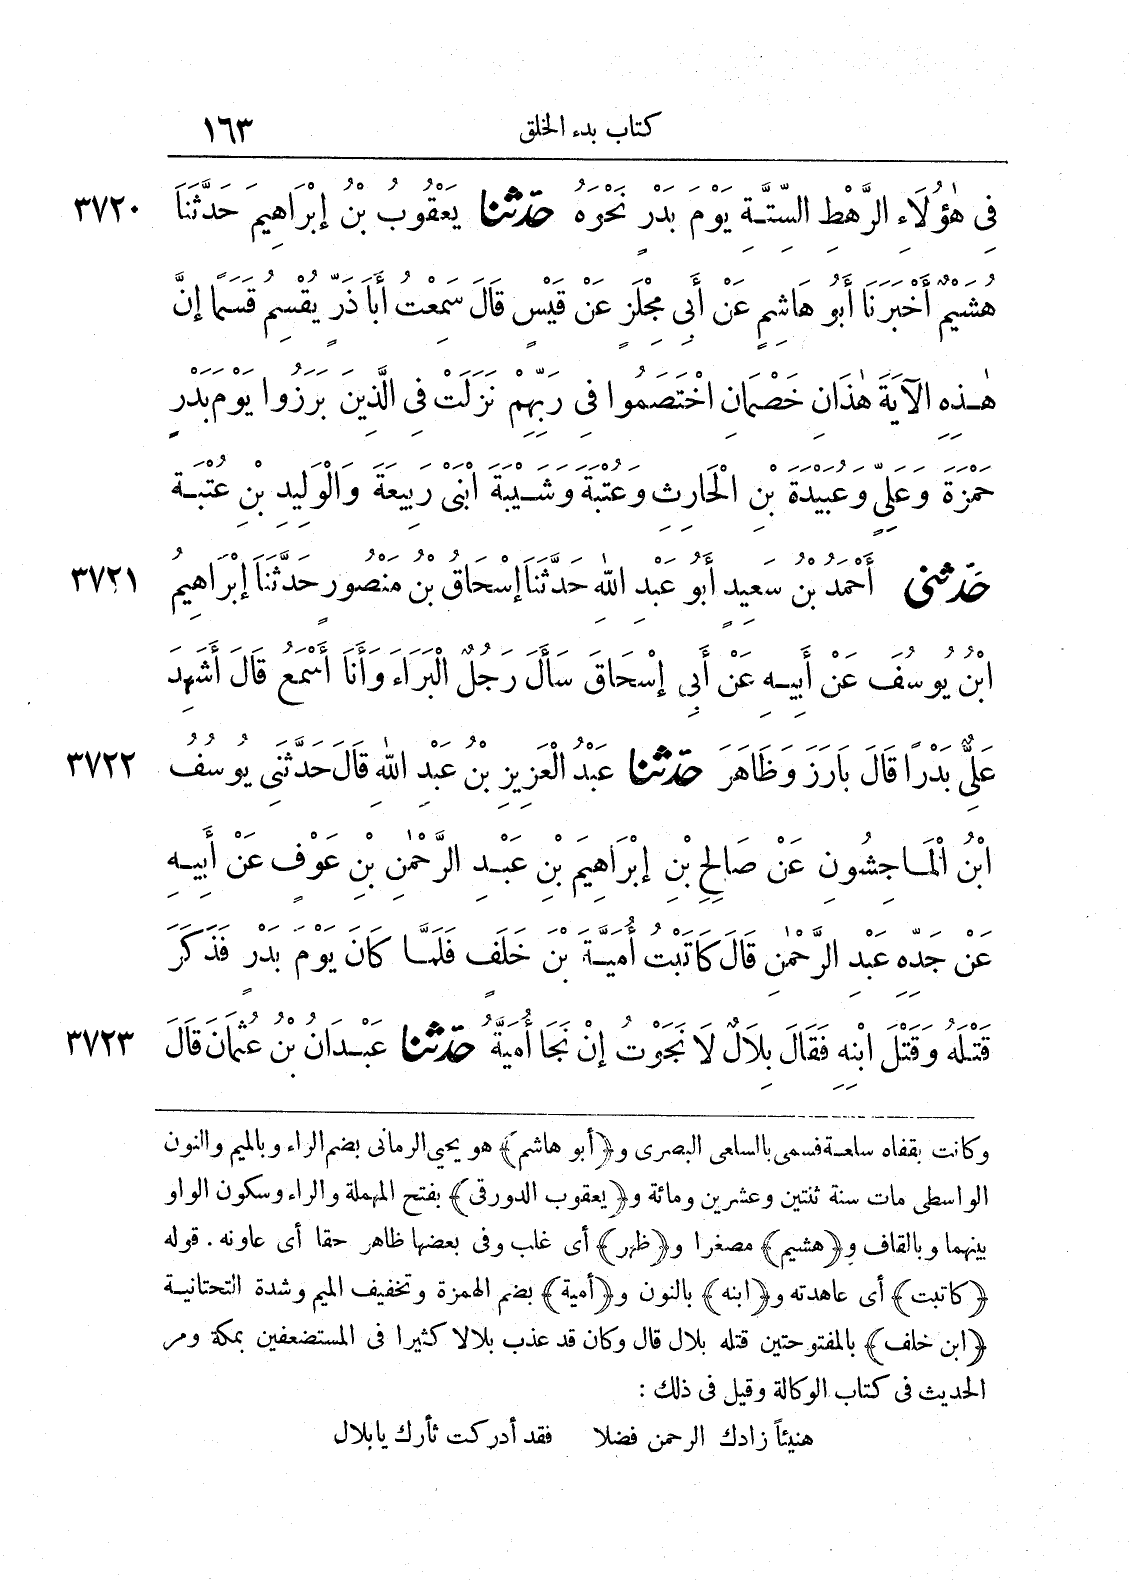 كتاب بدء الخلق ١٦٣
فِى هٰؤُلَاءِ الرَّهْطِ السِّتَّةِ يَوْمَ بَدْرٍ نَحْوَهُ حدّثنا يَعْقُوبُ بْنُ إِبْرَاهِيمَ حَدَّثَنَا ٣٧٢٠
هُشَيْمٌ أَخْبَرَنَا أَبُو هَاشِمٍ عَنْ أَبِى مِجْلَزٍ عَنْ قَيْسٍ قَالَ سَمِعْتُ أَبَا ذَرٍّ يُقْسِمُ قَسَمًا إِنَّ
هٰذِهِ الْآيَةَ هٰذَانِ خَصْمَانِ اخْتَصَمُوا فِى رَبِّهِمْ نَزَلَتْ فِى الَّذِينَ بَرَزُوا يَوْمَ بَدْرٍ
حَمْزَةَ وَعَلِىٍّ وَعُبَيْدَةَ بْنِ الْحَارِثِ وَعُتْبَةَ وَشَيْبَةَ ابْنَىْ رَبِيعَةَ وَالْوَلِيدِ بْنِ عُتْبَةَ
حَدّثنى أَحْمَدُ بْنُ سَعِيدٍ أَبُو عَبْدِ اللّٰهِ حَدَّثَنَا إِسْحَاقُ بْنُ مَنْصُورٍ حَدَّثَنَا إِبْرَاهِيمُ ٣٧٢١
ابْنُ يُوسُفَ عَنْ أَبِيهِ عَنْ أَبِى إِسْحَاقَ سَأَلَ رَجُلٌ الْبَرَاءَ وَأَنَا أَسْمَعُ قَالَ أَشَهِدَ
عَلِىٌّ بَدْرًا قَالَ بَارَزَ وَظَاهَرَ حدّثنا عَبْدُ الْعَزِيزِ بْنُ عَبْدِ اللّٰهِ قَالَ حَدَّثَنِى يُوسُفُ ٣٧٢٢
ابْنُ الْمَاجِشُونِ عَنْ صَالِحِ بْنِ إِبْرَاهِيمَ بْنِ عَبْدِ الرَّحْمٰنِ بْنِ عَوْفٍ عَنْ أَبِيهِ
عَنْ جَدِّهِ عَبْدِ الرَّحْمٰنِ قَالَ كَاتَبْتُ أُمَيَّةَ بْنَ خَلَفٍ فَلَمَّا كَانَ يَوْمَ بَدْرٍ فَذَكَرَ
قَتْلَهُ وَقَتْلَ ابْنِهِ فَقَالَ بِلَالٌ لَا نَجَوْتُ إِنْ نَجَا أُمَيَّةُ حدّثنا عَبْدَانُ بْنُ عُثْمَانَ قَالَ ٣٧٢٣
وكانت بقفاه سلعة فسمى بالسلعى البصرى و﴿أبو هاشم﴾ هو يحيى الرمانى بضم الراء وبالميم والنون
الواسطى مات سنة ثنتين وعشرين ومائة و﴿يعقوب الدورقى﴾ بفتح المهملة والراء وسكون الواو
بينهما وبالقاف و﴿هشيم﴾ مصغرا و﴿ظهر﴾ أى غلب وفى بعضها ظاهر حقا أى عاونه . قوله
﴿كاتبت﴾ أى عاهدته و﴿ابنه﴾ بالنون و﴿أمية﴾ بضم الهمزة وتخفيف الميم وشدة التحتانية
﴿ابن خلف﴾ بالمفتوحتين قتله بلال قال وكان قد عذب بلالا كثيرا فى المستضعفين بمكة ومر
الحديث فى كتاب الوكالة وقيل فى ذلك :
هنيئاً زادك الرحمن فضلا فقد أدركت ثأرك يابلال